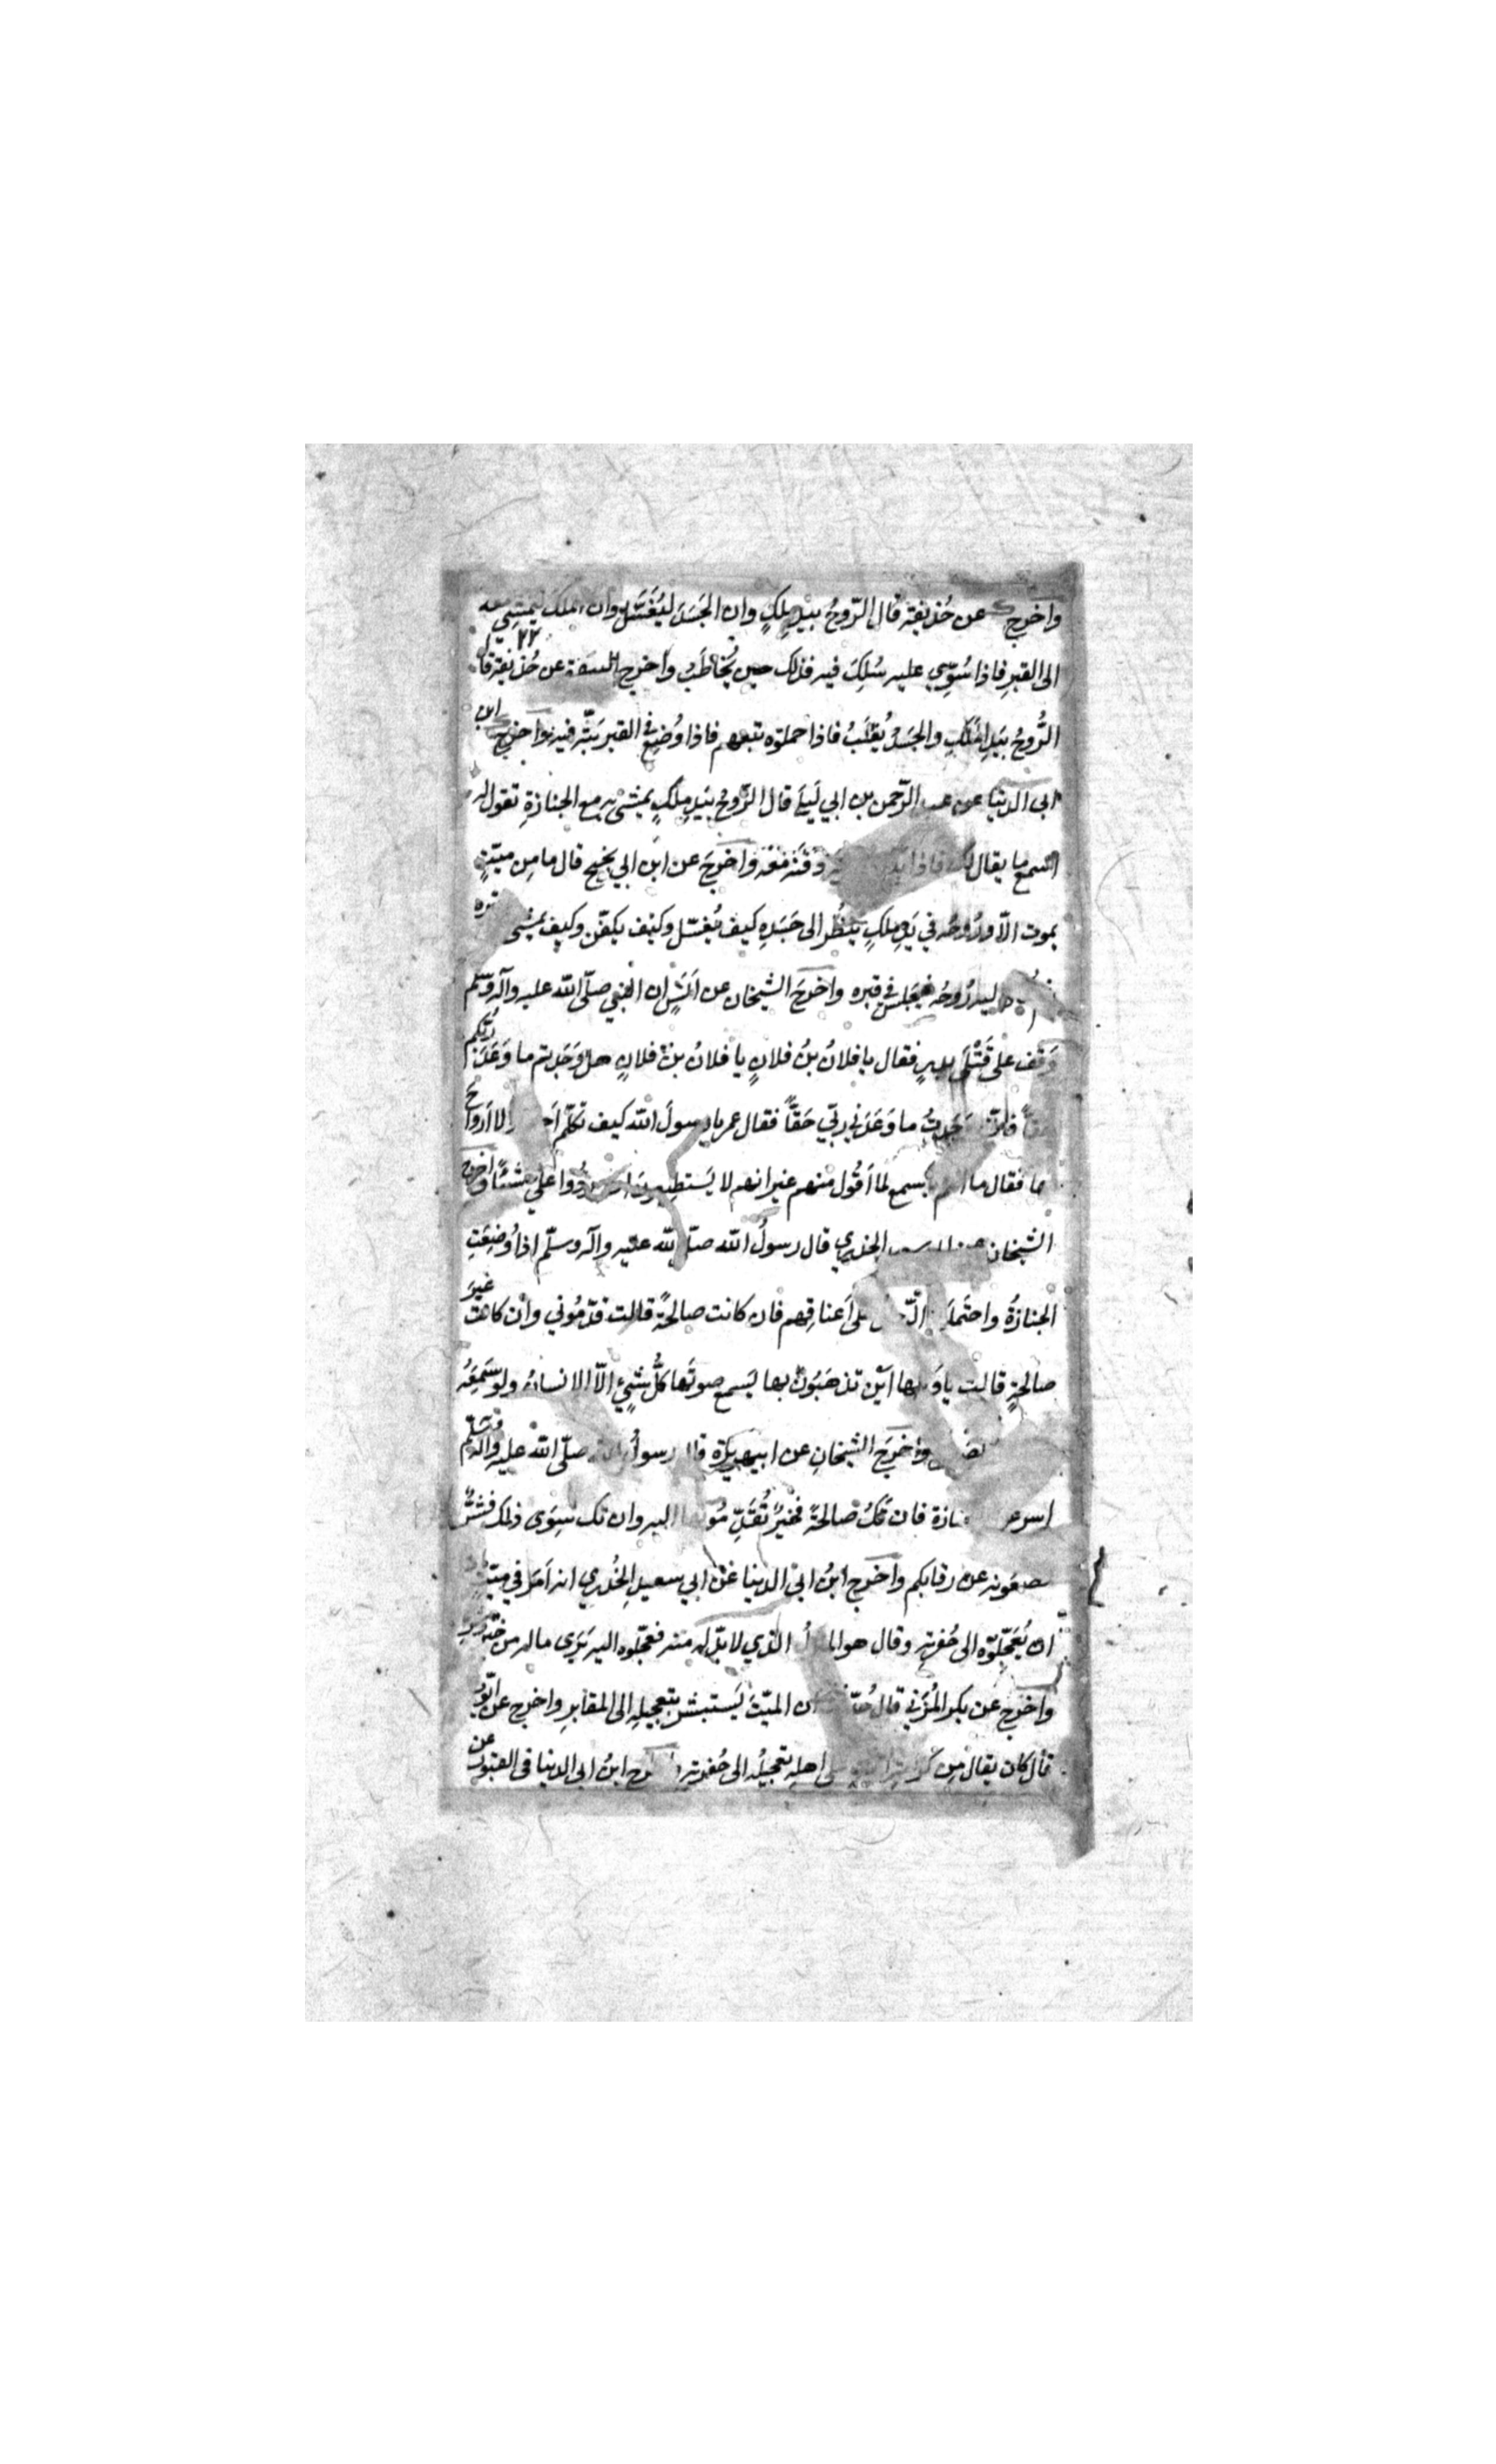 واخرج عن حُذيفة قال الرّوحُ بيد ملكٍ وان الجَسَدَ ليُغَسَّل وان الملكَ ليمشِي معه
٢٢
الى القبرِ فاذا سُوِّيَ عليه سُلِكَ فيه فذلك حين يُخاطَبُ واخرج عن حُذيفة قال
الرُّوحُ بيَدِ الملَكِ والجَسَدُ يُقلَّبُ فاذا حملوه تبعهم فاذا وُضِعَ في القبر بَثّه فيه واخرج ابن
ابى الدنيا عن عبد الرّحمن بن ابي لَيلَى قال الرّوحُ بيَدِ ملكٍ يمشي به مع الجنازةِ تقول له
اتسمع ما يقال لك فاذا دَفَنَه مَعَه واخرَجَ عن ابن ابي نجيح قال ما مِن ميّتٍ
يموت الّا ورُوحُه في يَدِ ملكٍ يَنظُر الى جَسَدِه كيف يُغسّل وكيف يكفّن وكيف يمشى
اليه رُوحُه فيجلس في قبره واخرَجَ الشيخان عن اَنَسٍ ان النبي صلّى الله عليه وآله وسلّم
وَقَف على قَتْلَى بدرٍ فقال يا فلانُ بنُ فلانٍ يا فلانُ بنُ فلانٍ هل وَجَدتم ما وَعَدَ ربّكم
حقاً وَجَدتُ ما وَعَدَني ربّي حَقّاً فقال عمر يا رسولَ الله كيف تكلّم لا اَرواح
فقال ما انتم باَسمع لما اَقُول منهم غير انهم لا يَستطيعون رُدُّوا عليّ شيئًا واخرج
الشيخان الخدري قال رسولُ الله صلّى الله عليه وآله وسلّم اذا وُضِعَتِ
الجنازةُ واحتَملَ على اَعناقِهم فان كانت صالحةً قالت قدّمُوني وان كانت غيرَ
صالحةٍ قالت يا اَيْن تذهَبُونَ بها يَسمع صوتَها كلُّ شيءٍ الّا الانسان ولو سَمِعَه
واخرَجَ الشيخانِ عن ابي هريرة قال رسولُ الله صلّى الله عليه وآله وسلّم
اسرعوا فان تكُ صالحةً فخيرٌ تُقَدِّمُونَها اليه وان تك سِوَى ذلك فشرٌّ
تضعُونه عن رقابكم واخرج ابنُ ابي الدنيا عن ابي سعيد الخُدري انه اَمَرَ في ميّتٍ
ان يُعَجِّلوه الى حُفرتِه وقال هو الذي لا بدّ له منه فعجّلوه اليه يَرَى ما له من خيرٍ
واخرج عن بكر المُزَني قال ان الميّتَ ليَستبشر بتعجيلِه الى المقابرِ واخرج عن ايوب
قال كان يقال مِن على اهلِه تعجيلُه الى حُفرته واخرج ابنُ ابي الدنيا في القبور عن